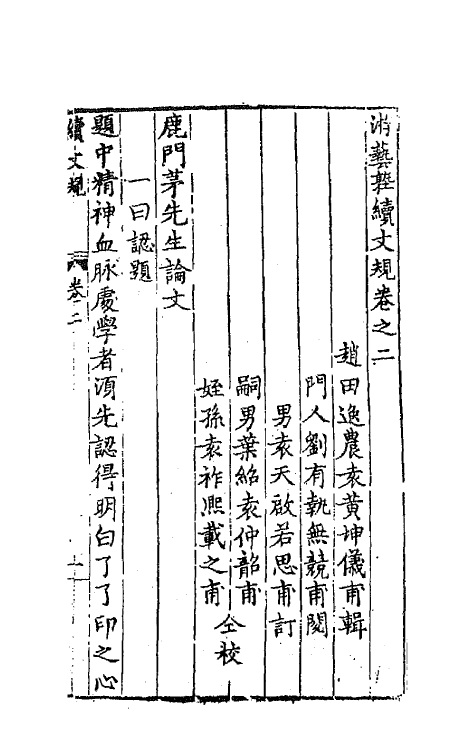 游藝塾續文規卷之二
趙田逸農袁黃坤儀甫輯
門人劉有執無競甫閱
男袁天啟若思甫訂
嗣男葉紹袁仲韶甫
姪孫袁祚熈載之甫
仝校
鹿門茅先生論文
一曰認題
題中精神血脉處學者須先認得明白了了印之心
續文規
卷二
一